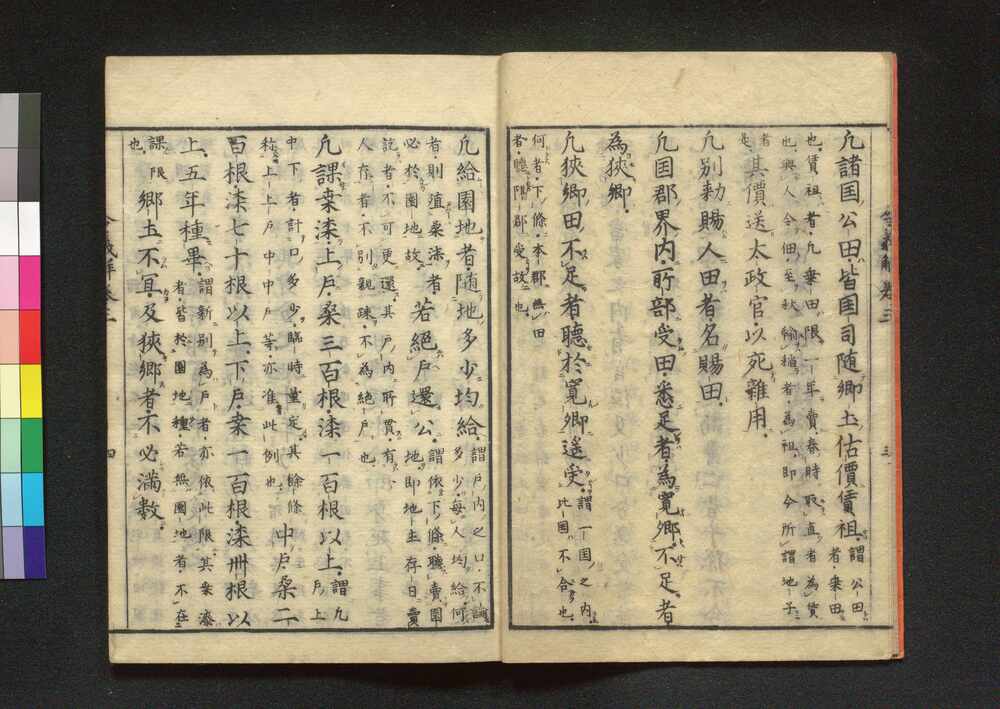 凡諸国公田皆国司随郷土估價賃租謂公田者乗田
也賃租者凡乗田限一年賣春時取直者為賃
也與人令佃至秋輸稲者為祖即今所謂地子
者是其價送太政官以死雜用
凡別勅賜人田者名賜田
凡国郡界内所部受田悉足者為寛郷不足者
為狭郷
凡狭郷田不足者聽於寛郷遥受謂一国之内比国不合也
何者下條本郡無田
者聽隔郡受故也
凡給園地者随地多少均給謂戸内之口不論多少毎人均給何
者則殖桑漆者若絶戸還公謂依下條聽賣園
必於園地故地即地主存日賣
訖者不可更還其戸内所貫有
人存者不別親踈不為絶戸也
凡課桒漆上戸桑三百根漆一百根以上謂九戸上
中下者計口多少臨時量定其餘條中戸桒二
称上上戸中中戸等亦准此例也
百根漆七十根以上下戸桒一百根漆卌根以
上五年種畢謂新別為戸者亦依此限其桒漆
者皆於園地種若無園地者不在
課限也郷土不宜及狭郷者不必満数
令義解卷三
四